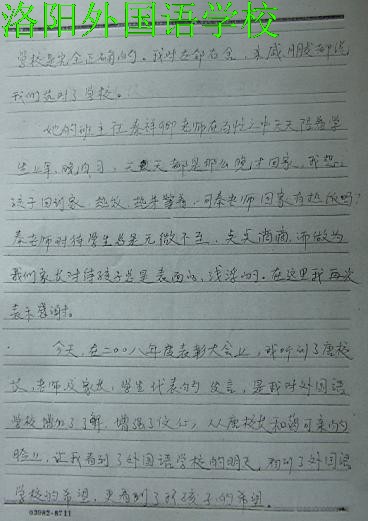 洛阳外国语学校
学校是完全正确的。我对左邻右舍,亲戚朋友都说
我们选对了学校。
她的班主任秦祥卿老师在百忙之中天天陪着学
生上早、晚自习,天天都是那么晚才回家,我想:
孩子回到家,热饭、热茶等着,可秦老师回家有热饭吗?
秦老师对待学生总是无微不至,点点滴滴,而做为
我们家长对待孩子总是表面的,浅浮的。在这里我再次
表示感谢。
今天,在二〇〇八年度表彰大会上,我听到了唐校
长,老师及家长,学生代表的发言,是我对外国语
学校增加了了解,增强了信心,从唐校长和蔼可亲的
脸上,让我看到了外国语学校的明天,看到了外国语
学校的希望,更看到了我孩子的希望。
03982-8711